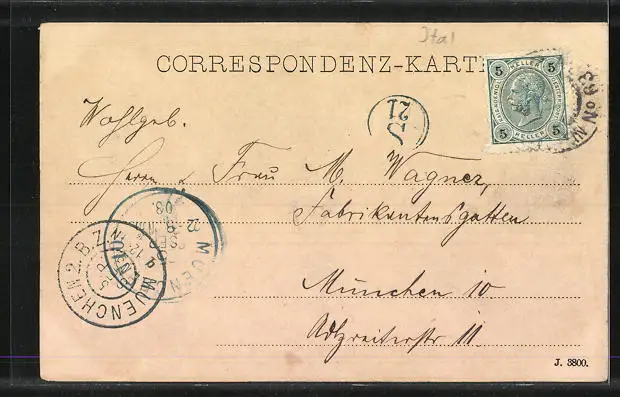 Ital
CORRESPONDENZ-KARTE
5 5
HELLER
5 5
HELLER
No 63
21
Wohlgeb.
Herrn & Frau M. Wagner,
Fabrikantensgatten
München 10.
Adlzreiterstr 11
MUENCHEN 2. B.Z.
J. 3800.